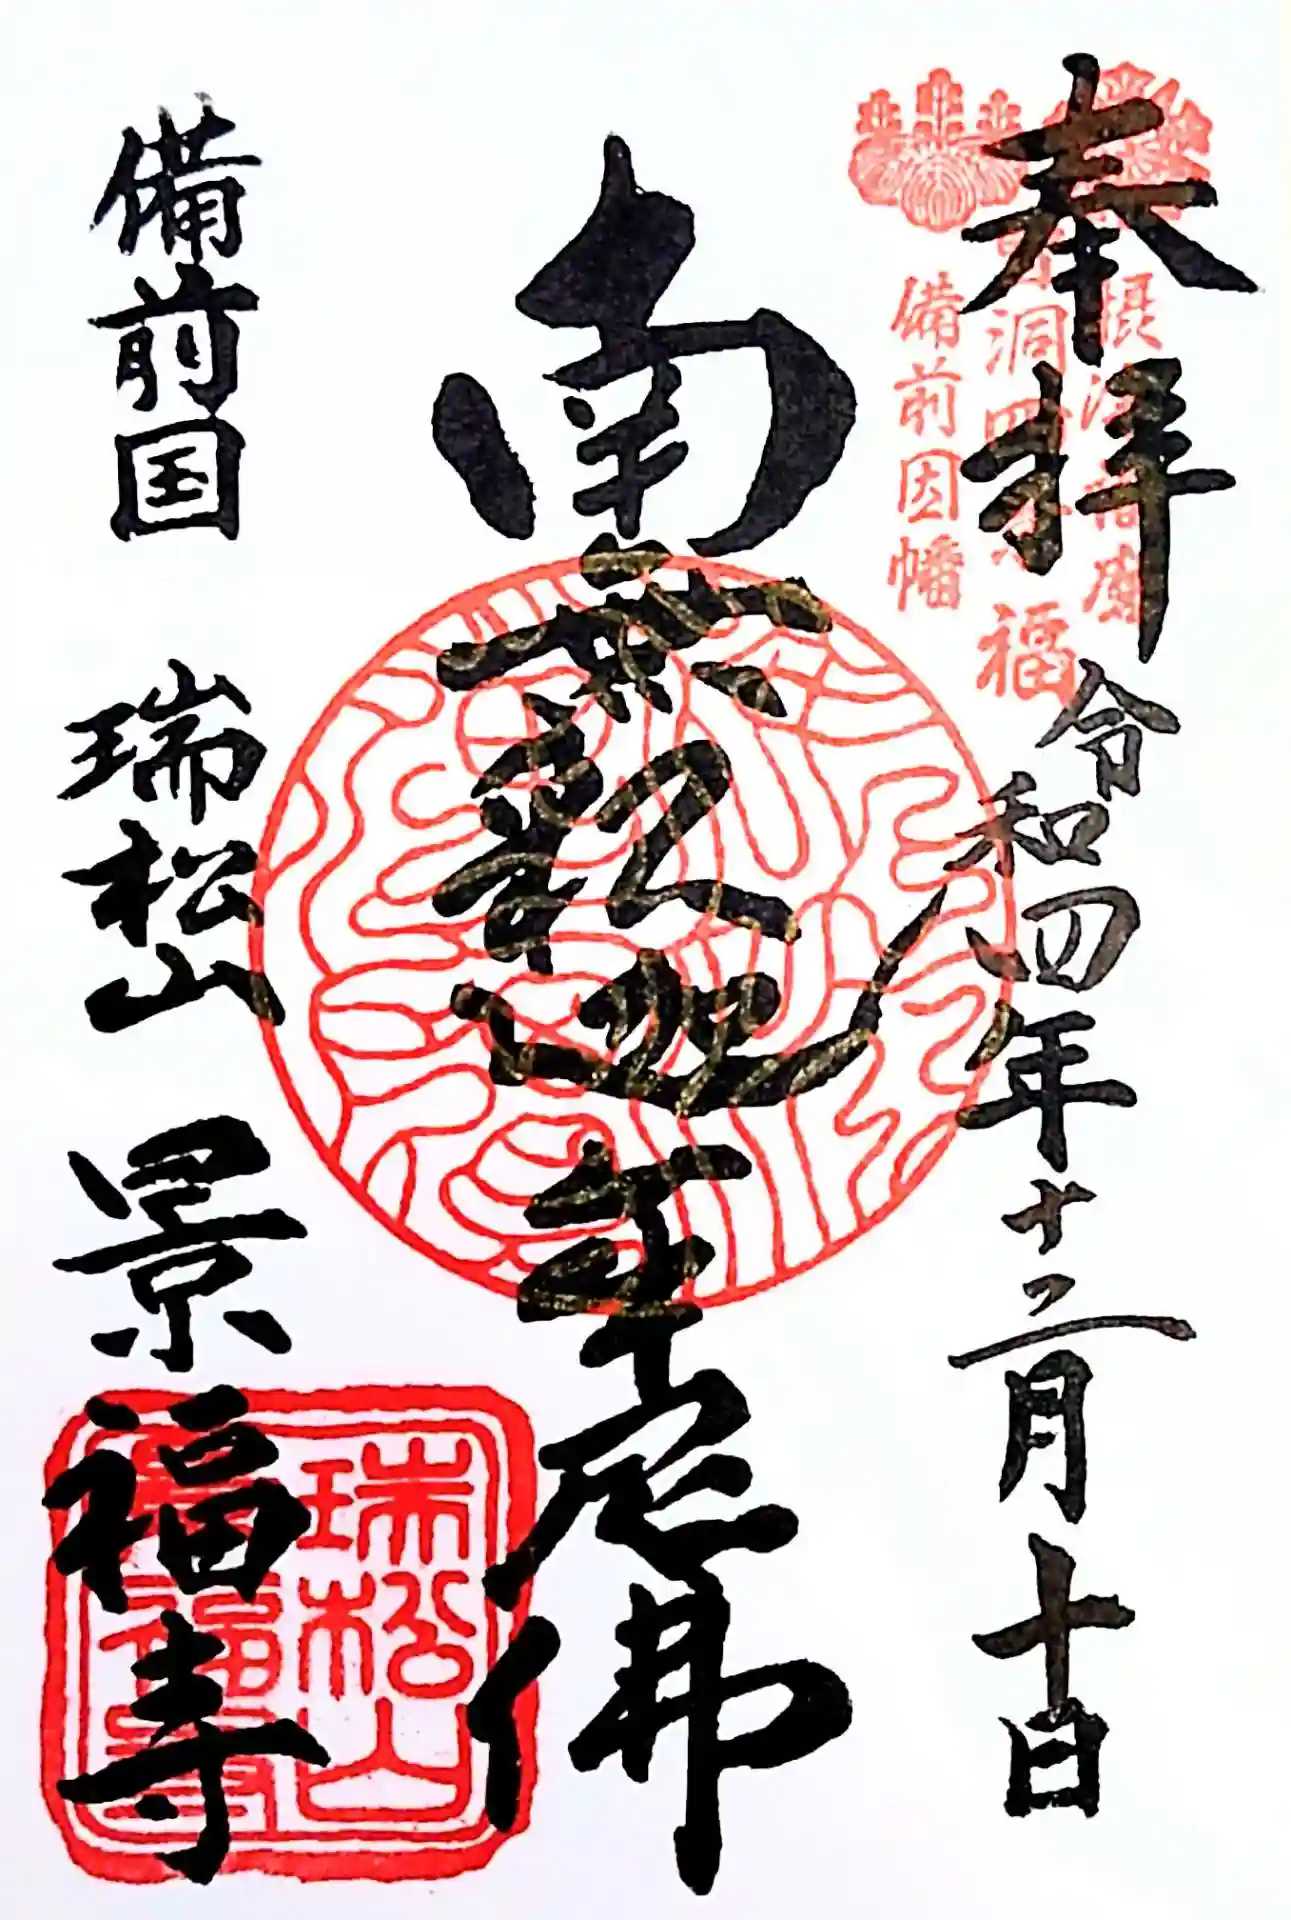 奉拝 令和四年十二月十日
備前因幡
福
南無釈迦牟尼佛
備前国 瑞松山 景福寺
瑞松山
景福寺